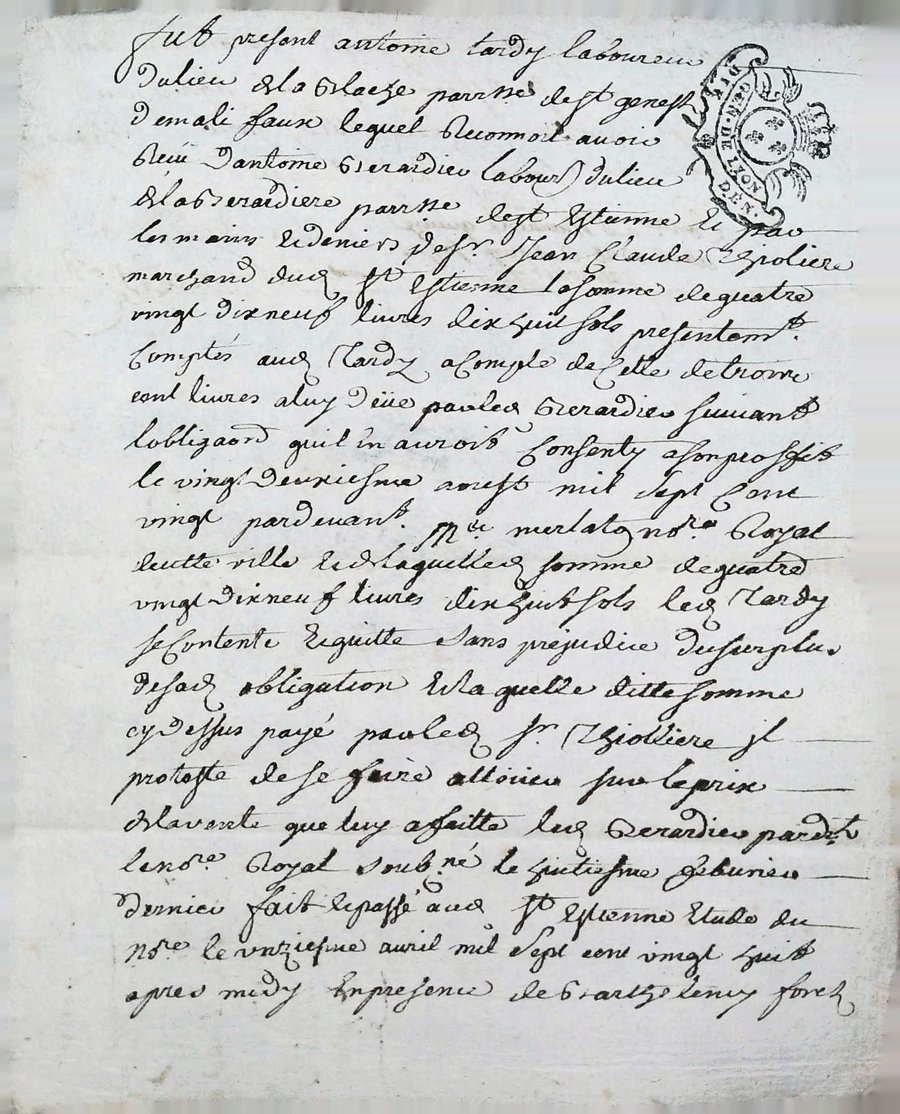 fut present antoine tardy laboureur
du lieu de la Blache parrsse de st genest
de malifaux lequel Reconnoit avoir
Reçu d'antoine Berardier labour du lieu
de la Berardiere parrsse de st Estienne et par
les mains et deniers de sr. Jean Claude Thioliere
marchand dud st Estienne la somme de quatre
vingt dix neuf livres dix huit sols presentemt.
Comptés aud Tardy a Compte de Celle de trois
cent livres a luy düe par led Berardier suivant
l'obligaon qu'il en auroit Consenty a son proffit
le vingt deuxiesme aoust mil sept Cent
vingt pardevant. Me merlat nore Royal
de cette ville et de laquelle somme de quatre
vingt dix neuf livres dix huit sols led Tardy
se Contente et quitte sans préjudice du surplus
de sad obligation et laquelle ditte somme
cy dessus payé par led sr Thiolliere jl
proteste de se faire allouer sur le prix
de la vente que luy a faitte led Berardier pardvt
le nore Royal soubné le huitiesme febvrier
dernier fait et passé aud st Estienne Etude du
nore le unziesme avril mil sept cent vingt huit
apres midy En presence de Barthelemy forest
GEN. DE LYON